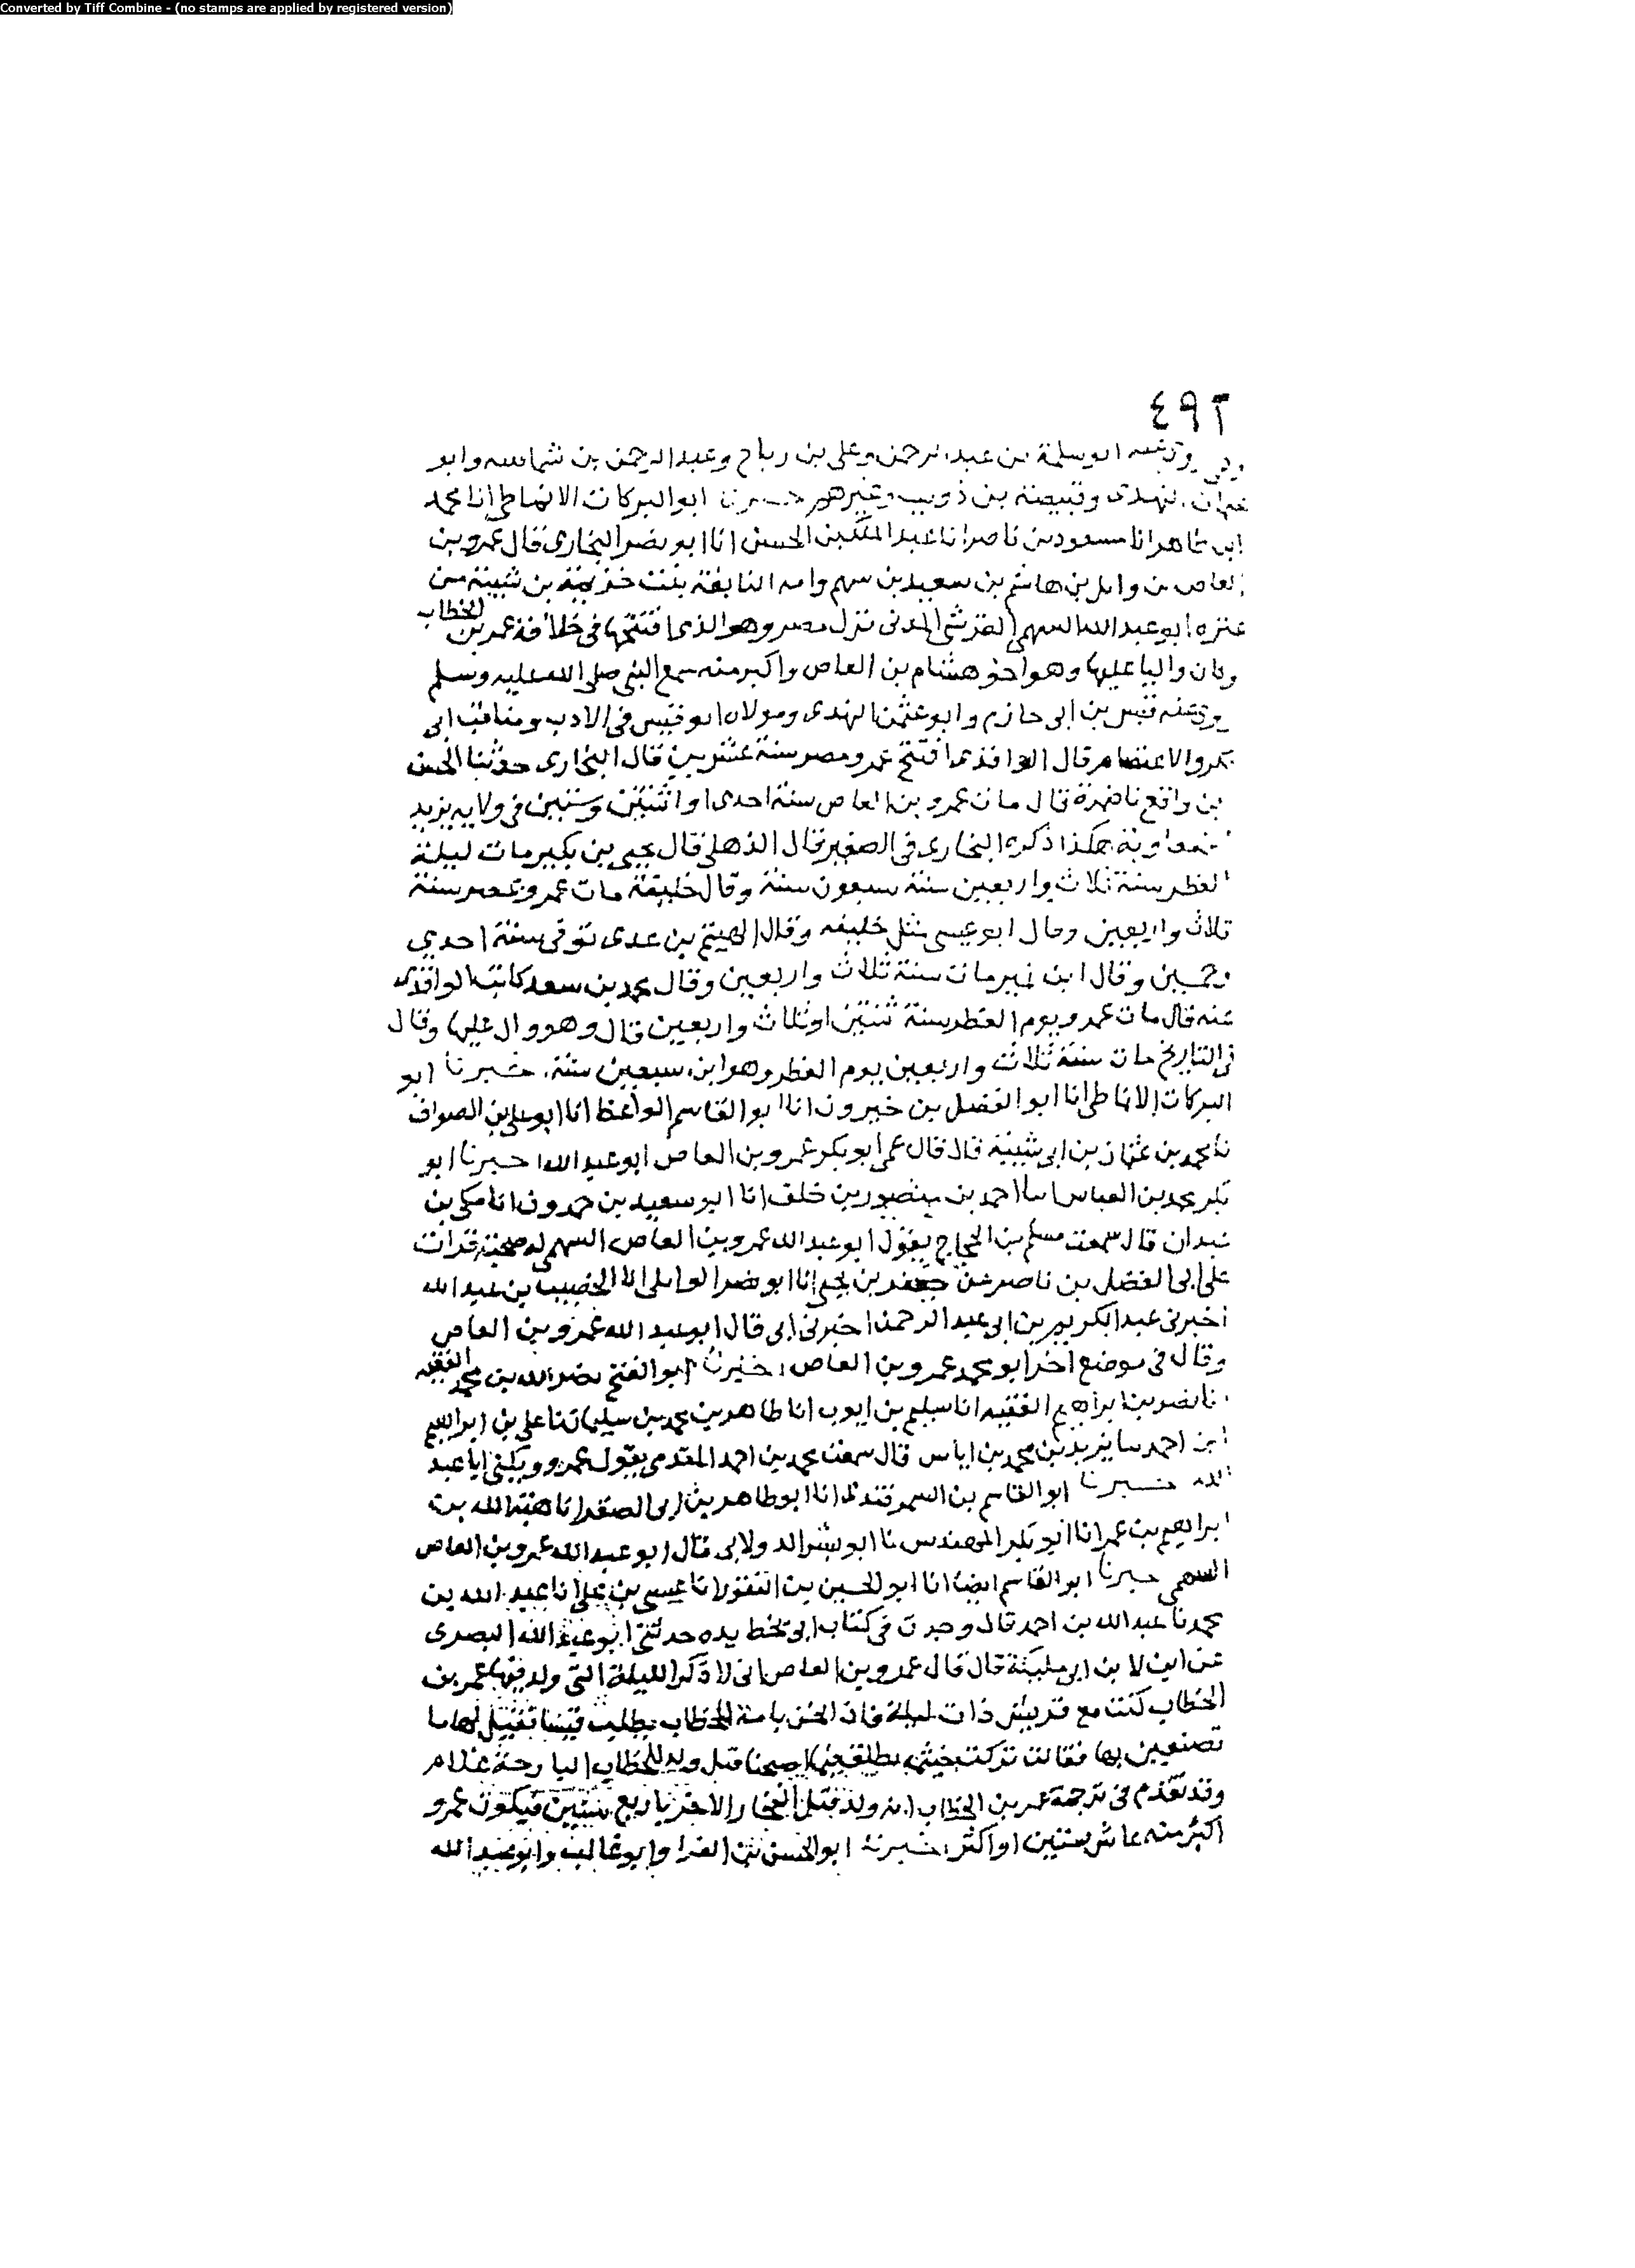 Converted by Tiff Combine - (no stamps are applied by registered version)
٤٩٢
ابو سلمة بن عبد الرحمن وعلى بن رباح وعبد الرحمن بن شماسه وابو
النهدى وقبيصة بن ذويب وغيرهم ابو البركات الانماطى انا محمد
ابن طاهر انا مسعود بن ناصر انا عبد الملك بن الحسن انا ابو نصر البخارى قال عمرو بن
العاص بن وايل بن هاشم بن سعيد بن سهم وامه النابغة بنت خزيمة بن شيبة من
عنزه ابو عبد الله السهمى القرشى المدنى نزل مصر وهو الذى افتتحها فى خلافة عمر بن الخطاب
وكان واليا عليها وهو اخو هشام بن العاص واكبر منه سمع النبى صلى الله عليه وسلم
روى عنه قيس بن ابى حازم وابو عثمن النهدى ومولاه ابو قيس فى الادب ومناقب ابى
بكر والاعتصام قال الواقدى افتتح عمرو مصر سنة عشرين قال البخارى حدثنا الحسن
بن واقع نا ضمرة قال مات عمرو بن العاص سنة احدى او اثنتين وستين فى ولايه يزيد
بن معاوية هكذا ذكره البخارى فى الصغير قال الذهلى قال يحيى بن بكير مات ليلة
الفطر سنة ثلاث واربعين سنه سبعون سنة وقال خليفة مات عمرو بمصر سنة
ثلاث واربعين وقال ابو عيسى مثل خليفه وقال الهيثم بن عدى توفى سنة احدي
وخمسين وقال ابن نمير مات سنة ثلاث واربعين وقال محمد بن سعد كاتب الواقدى
عنه قال مات عمرو يوم الفطر سنة ثنتين او ثلاث واربعين قال وهو وال عليها وقال
فى التاريخ مات سنة ثلاث واربعين يوم الفطر وهو ابن سبعين سنة اخبرنا ابو
البركات الانماطى انا ابو الفضل بن خيرون انا ابو القاسم الواعظ انا ابو على بن الصواف
نا محمد بن عثمان بن ابى شيبة قال قال عمى ابو بكر عمرو بن العاص ابو عبد الله اخبرنا ابو
بكر محمد بن العباس انا احمد بن منصور بن خلف انا ابو سعيد بن حمدون انا مكى بن
عبدان قال سمعت مسلم بن الحجاج يقول ابو عبد الله عمرو بن العاص السهمى له صحبة قرات
على ابى الفضل بن ناصر عن جعفر بن يحيى انا ابو نصر الوايلى انا الخصيب بن عبد الله
اخبرنى عبد الكريم بن ابى عبد الرحمن اخبرنى ابى قال ابو عبد الله عمرو بن العاص
وقال فى موضع اخر ابو محمد عمرو بن العاص اخبرنا ابو الفتح نصر الله بن محمد الفقيه
انا نصر بن ابراهيم الفقيه انا سليم بن ايوب انا طاهر بن محمد بن سليمان نا على بن ابراهيم
ابن احمد نا يزيد بن محمد بن اياس قال سمعت محمد بن احمد المقدمى يقول عمرو ويكنى ابا عبد
الله اخبرنا ابو القاسم بن السمرقندى انا ابو طاهر بن ابى الصقر انا هبة الله بن
ابراهيم بن عمر انا ابو بكر المهندس نا ابو بشر الدولابى قال ابو عبد الله عمرو بن العاص
السهمى اخبرنا ابو القاسم ايضا انا ابو الحسين بن النقور انا عيسى بن على انا عبد الله بن
محمد نا عبد الله بن احمد قال وجدت فى كتاب ابى بخط يده حدثنى ابو عبد الله البصرى
عن ابن لابن ابى مليكة قال قال عمرو بن العاص انى لاذكر الليلة التى ولد فيها عمر بن
الخطاب كنت مع قريش ذات ليلة فاذا بامة الخطاب تطلب فقيل لها ما
تصنعين بها فقالت تركت اصبحنا قيل ولد للخطاب البارحة غلام
وقد تقدم فى ترجمة عمر بن الخطاب انه ولد قبل الفجار الاخر باربع سنين فيكون عمرو
اكبر منه عاشر سنين او اكثر اخبرنا ابو الحسن بن الفرا وابو غالب وابو عبد الله